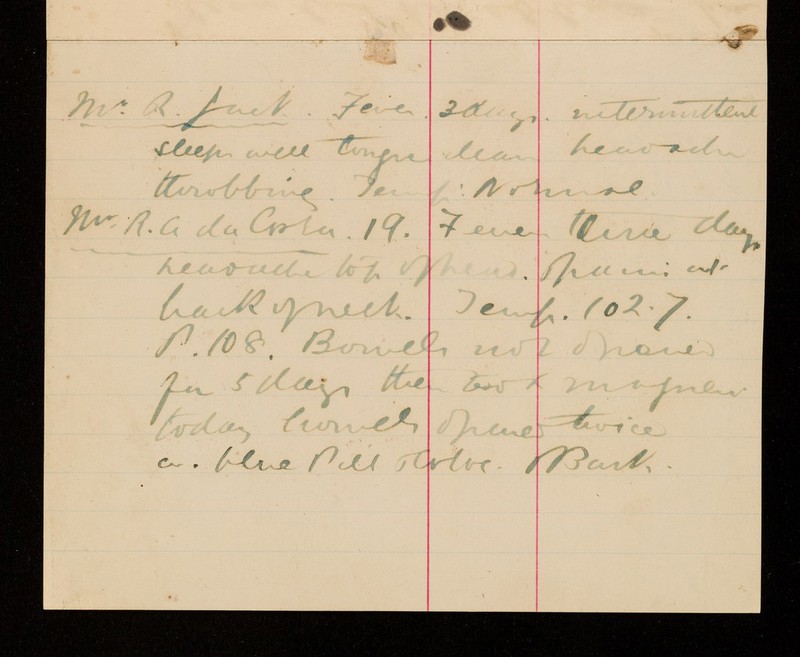 Mr. R. Jack. Fever. 3 days. intermittent
sleeps well tongue clean headache
throbbing. Temp. Normal.
Mr. R. A da Costa. 19. Fever three days
headache top of head. & pains at
back of neck. Temp. 102.7.
P. 108. Bowels not opened
for 5 days then took magnes
today bowels opened twice
a. blue Pill & Bark.